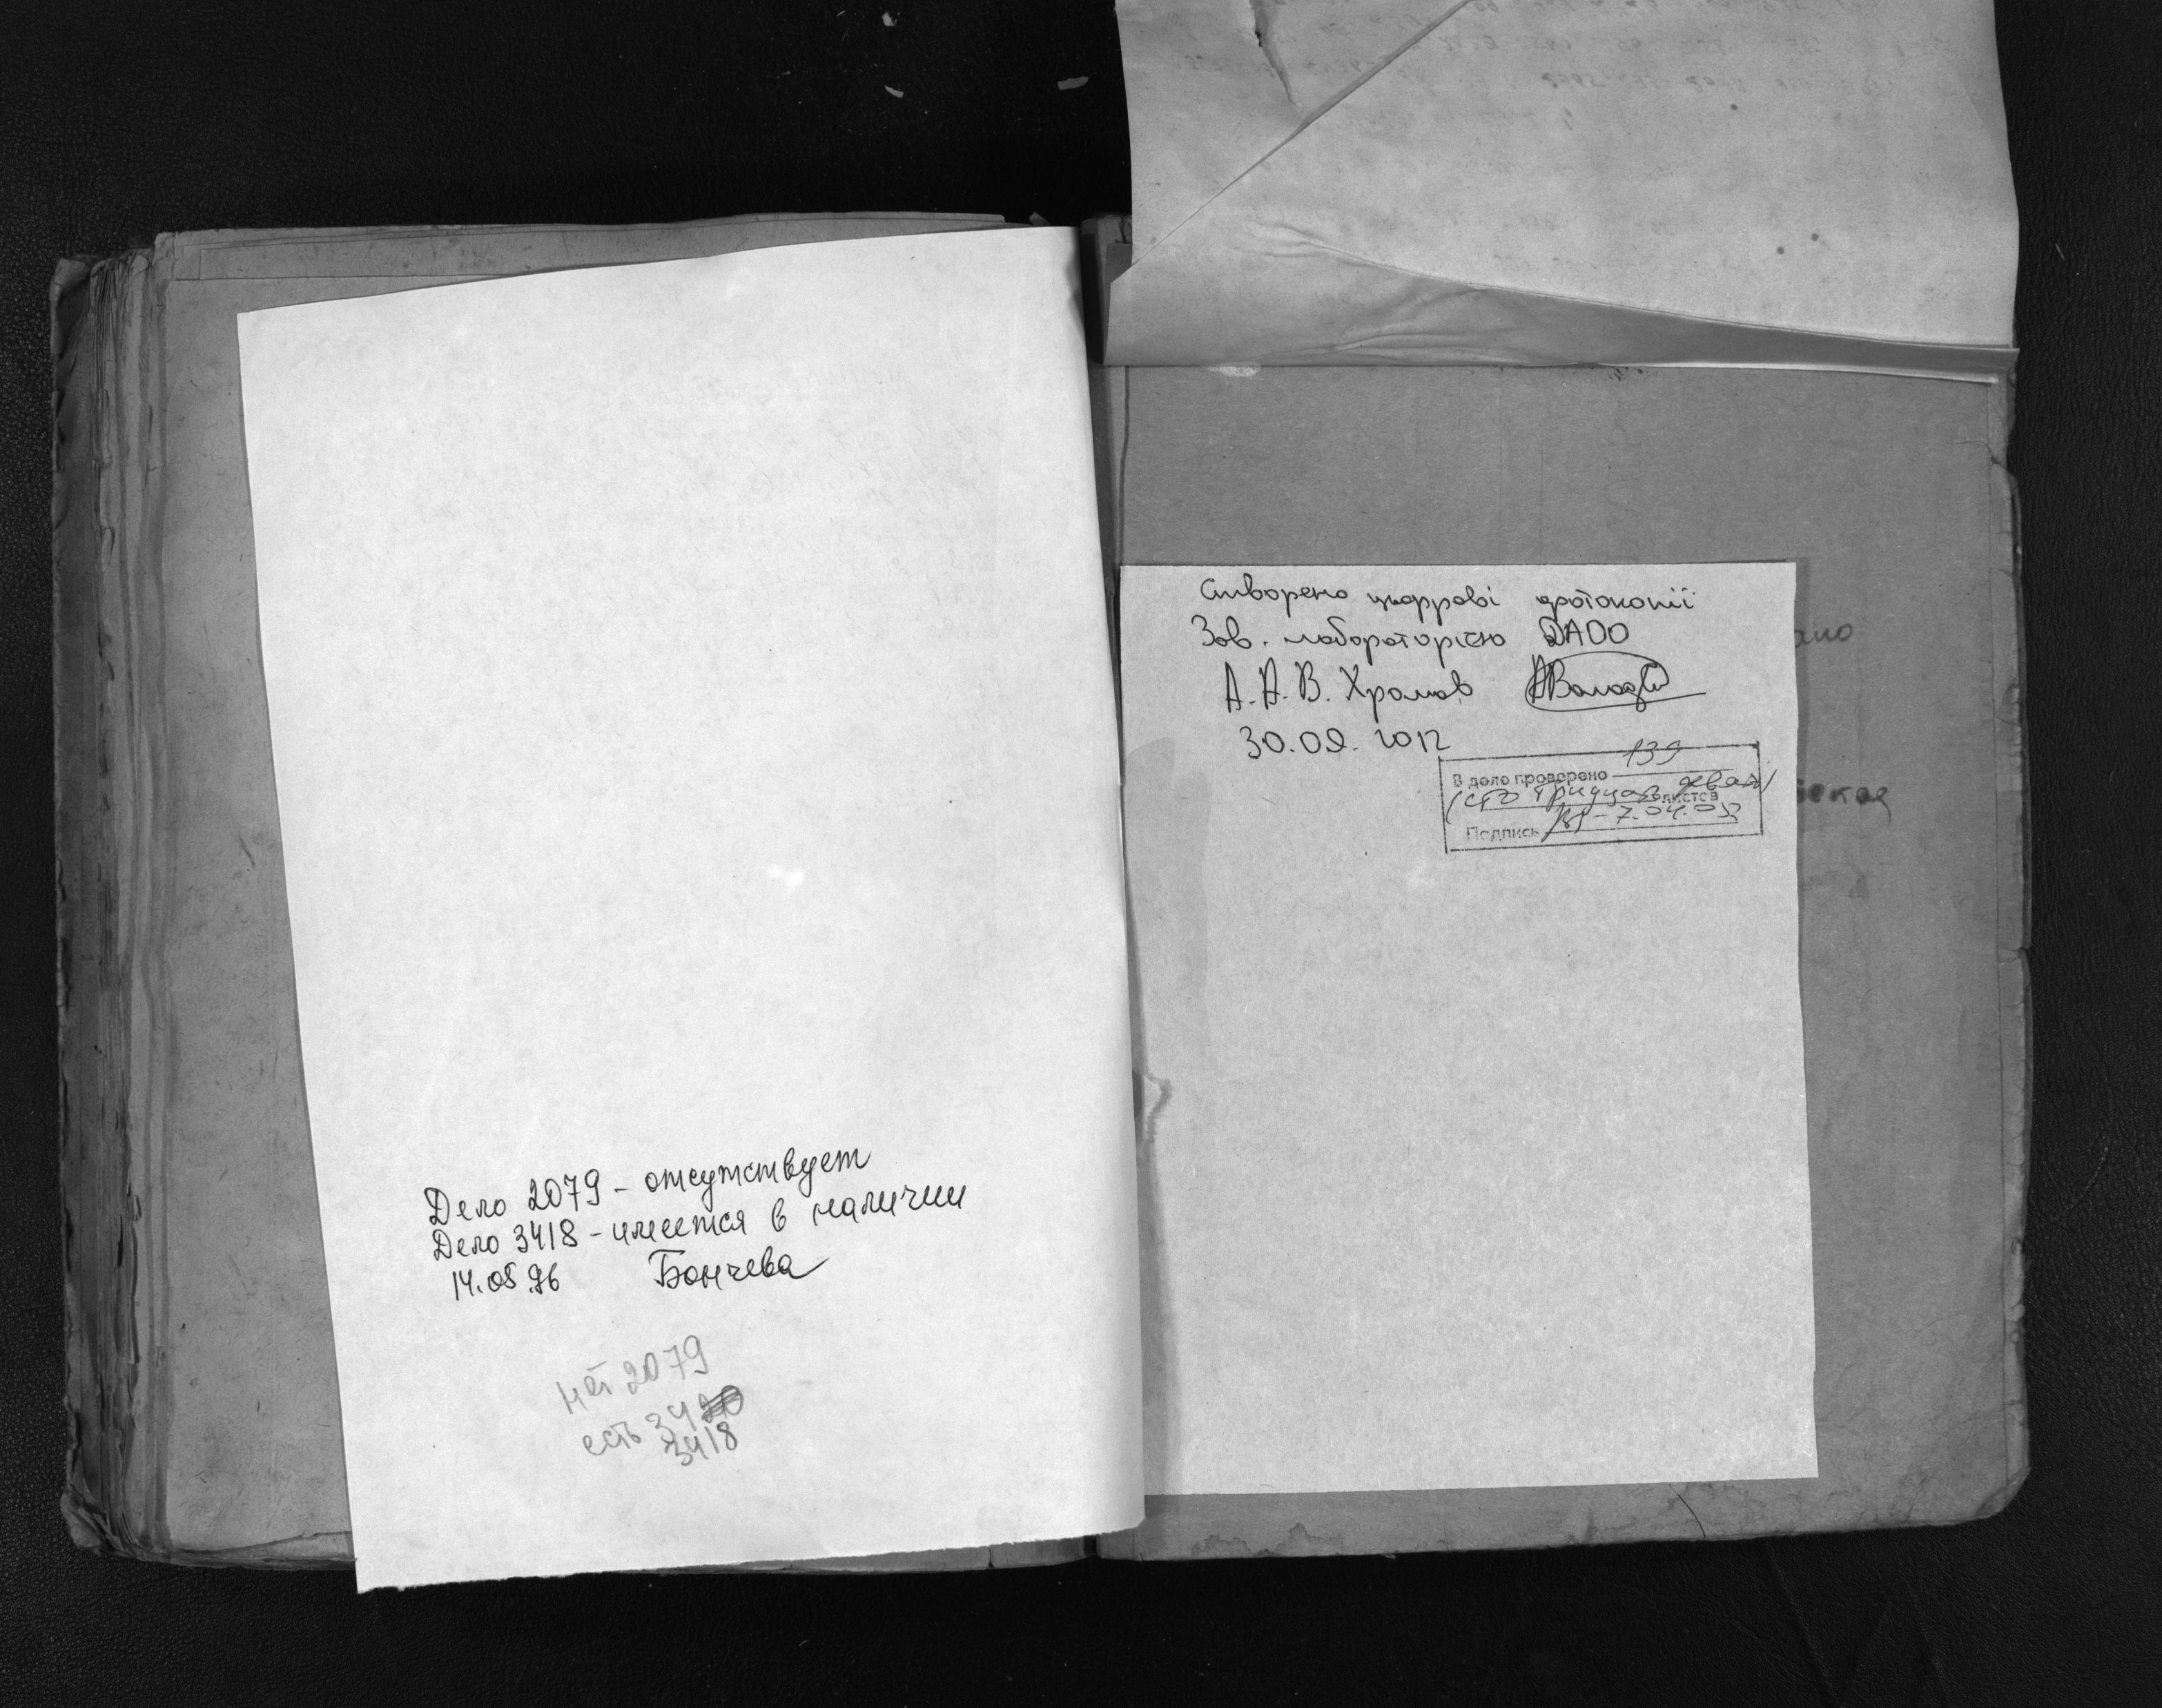 Дело 2079 - отсутствует
Дело 3418 - имеется в наличии
14.05.96 Бончева
нет 2079
есть 34
3418
Створено цифрові фотокопії
Зав. лабораторією ДАОО
А.А.В. Хромов
30.09.2012
В деле проверено 139
(сто тридцать девять)
листов
Подпись - 7.04.03